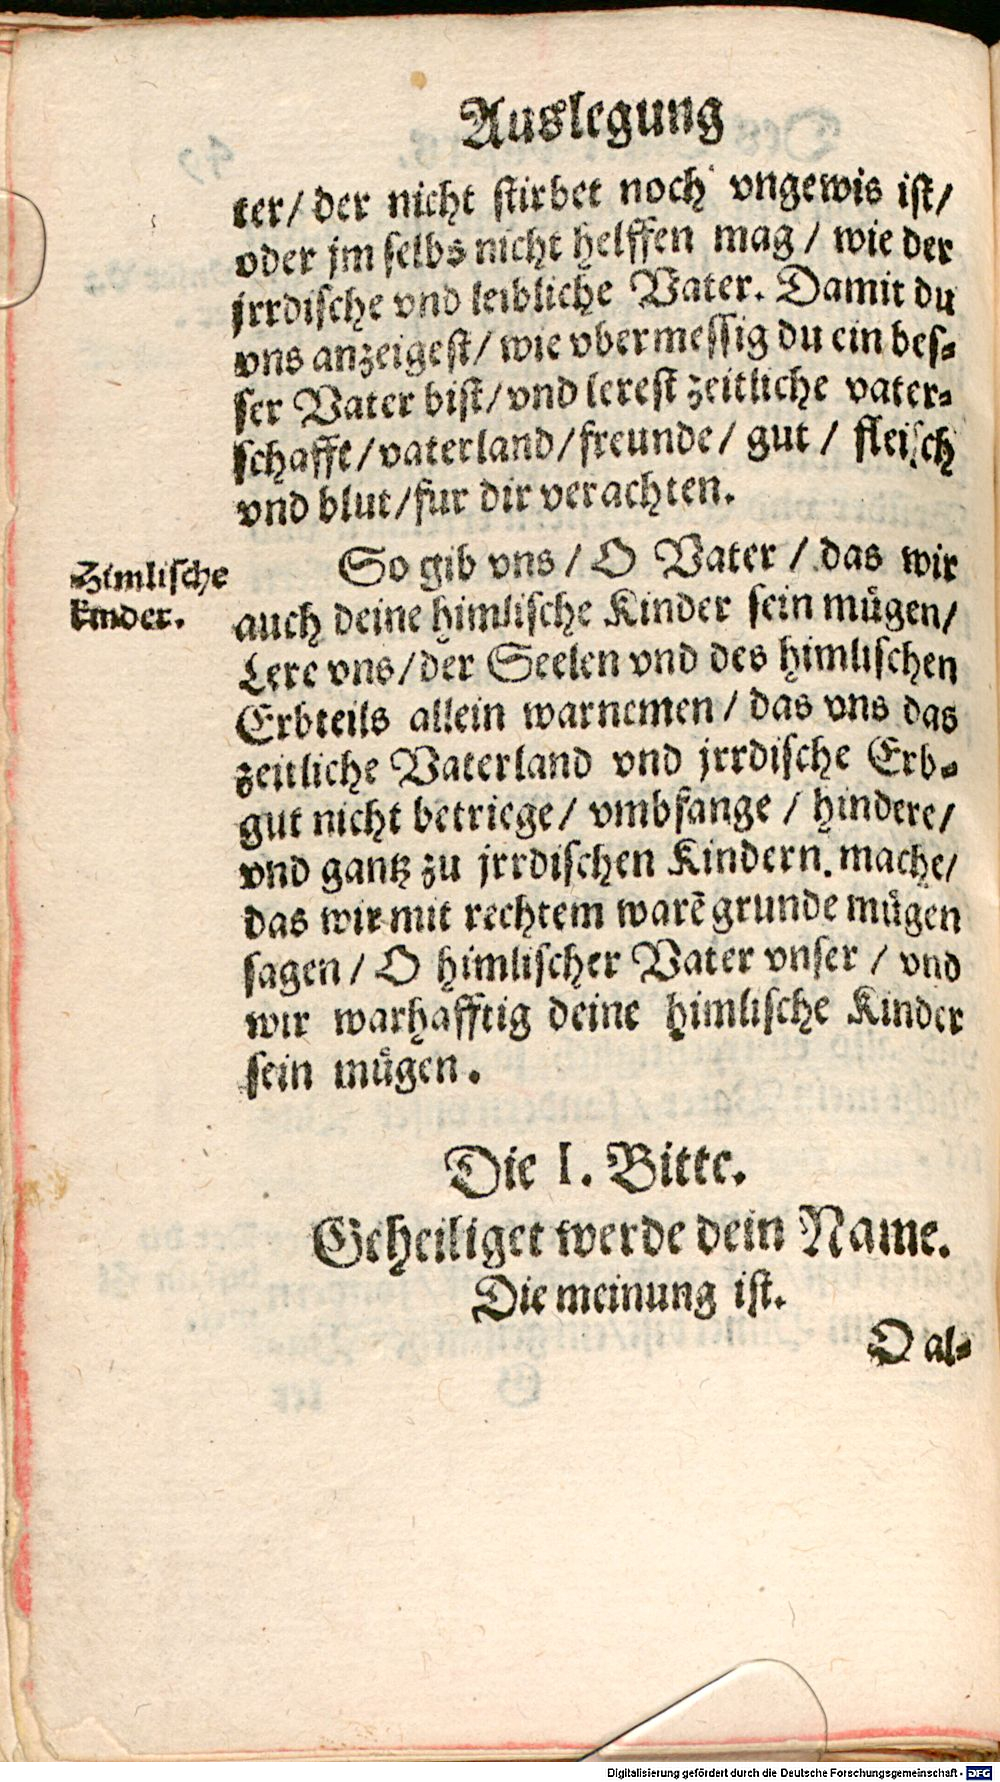 Auslegung
ter/ der nicht stirbet noch vngewis ist/
oder jm selbs nicht helffen mag / wie der
jrrdische vnd leibliche Vater. Damit du
vns anzeigest/ wie vbermessig du ein bes-
ser Vater bist/ vnd lerest zeitliche vater-
schafft/ vaterland/ freunde/ gut / fleisch
vnd blut/ fur dir verachten.
So gib vns / O Vater / das wir
Himlische
kinder.
auch deine himlische Kinder sein mügen/
Lere vns/ der Seelen vnd des himlischen
Erbteils allein warnemen / das vns das
zeitliche Vaterland vnd jrrdische Erb-
gut nicht betriege/ vmbfange / hindere/
vnd gantz zu jrrdischen Kindern mache/
das wir mit rechtem warẽ grunde mügen
sagen / O himlischer Vater vnser / vnd
wir warhafftig deine himlische Kinder
sein mügen.
Die I. Bitte.
Geheiliget werde dein Name.
Die meinung ist.
O al-
Digitalisierung gefördert durch die Deutsche Forschungsgemeinschaft - DFG